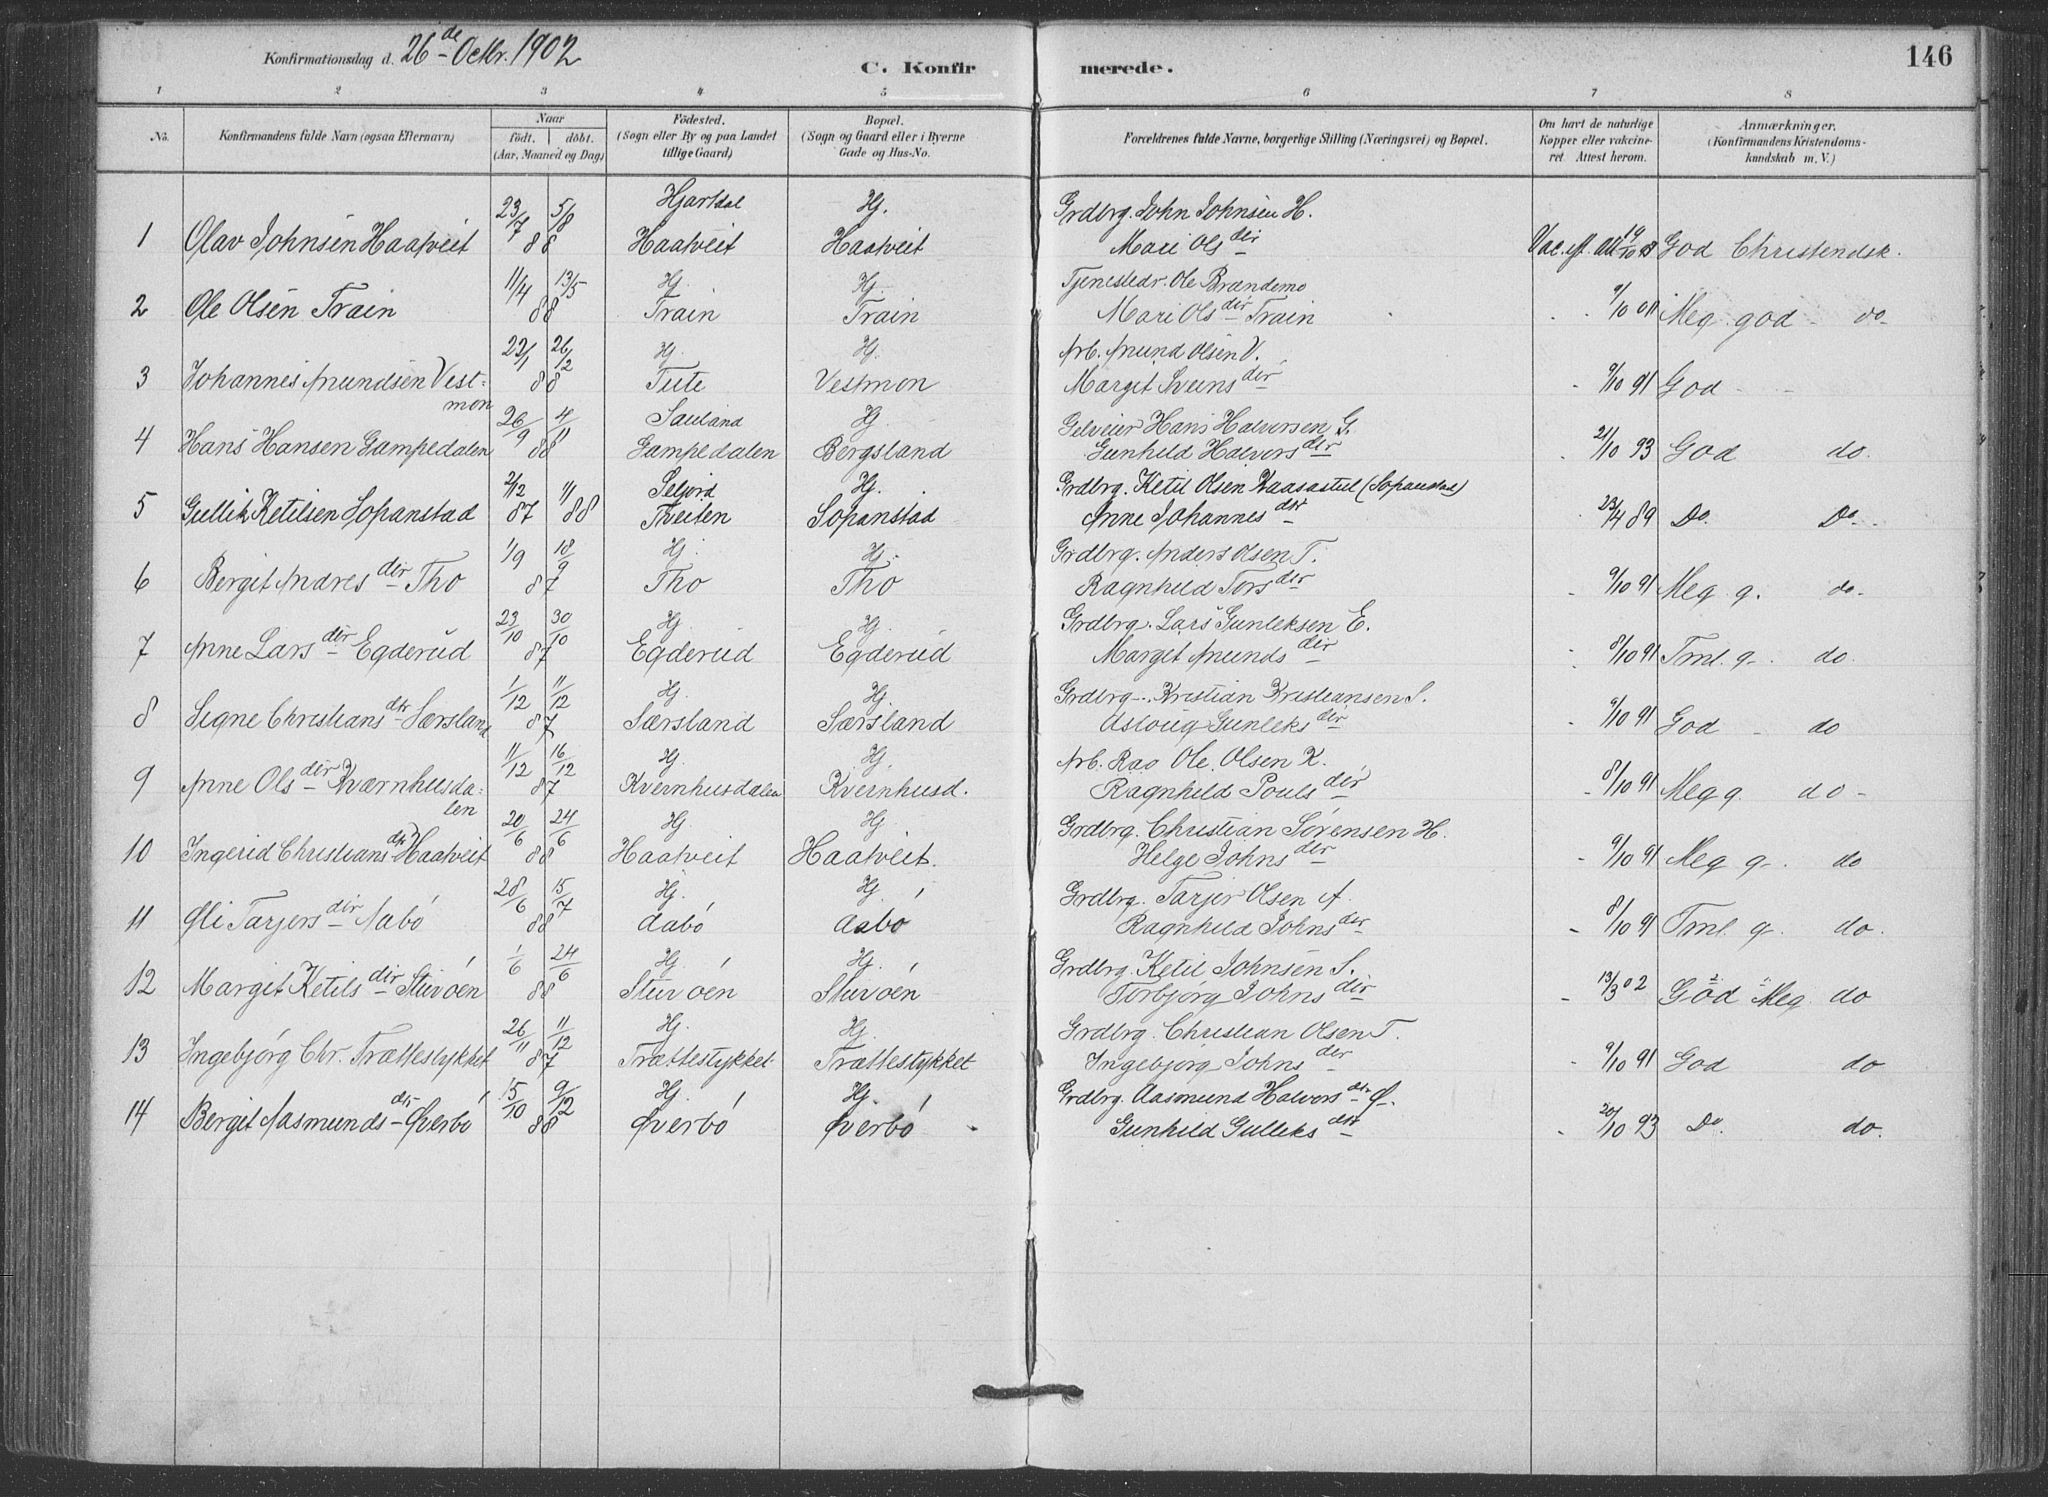 Konfirmationsdag d. 26de Octbr. 1902
C. Konfirmerede.
146
1 2 3 4 5 6 7 8
No. Konfirmandens fulde Navn (ogsaa Efternavn) Naar födt. döbt. (Aar, Maaned og Dag) Födested. (Sogn eller By og paa Landet tillige Gaard) Bopæl. (Sogn og Gaard eller i Byerne Gade og Hus-No. Forældrenes fulde Navne, borgerlige Stilling (Næringsvei) og Bopæl. Om havt de naturlige Kopper eller vakcineret. Attest herom. Anmærkninger. (Konfirmandens Kristendomskundskab m. V.)
23/7 5/8 Hjartdal Hj. Grdbrg. John Johnsen H.
1 Olav Johnsen Haatveit 88 Haatveit Haatveit Mari Olsdtr Vac. eft. att 19/10 God Christendsk.
11/4 13/5 Hj. Hj. Tjenestedr. Ole Brændemo
2 Ole Olsen Train 88 Train Train Mari Olsdtr Train 9/10 Meg. god - do
22/1 26/12 Hj. Hj. Arb. Aund Olsen V.
3 Johannes Aundsen Vestmon 88 Tute Vestmon Margit Sveinsdtr 9/10 91 God - -
26/9 4/11 Sauland Hj. Hans Halvorsen G.
4 Hans Hansen Gampedalen 88 Gampedalen Bergsland Gunhild Halvorsdtr 21/10 93 God do.
2/12 1/1 Seljord Hj. Grdbrg. Ketil Olsen Kaasastul (Sopanstad)
5 Gullik Ketilsen Sopanstad 87 88 Tveiten Sopanstad Anne Johannesdtr 23/4 89 Do. Do.
1/9 18/9 Hj. Hj. Grdbrg. Anders Olsen T.
6 Bergit Andresdtr Tho 87 Tho Tho Ragnhild Torsdtr 9/10 91 Meg. g. do.
23/10 30/10 Hj. Hj. Grdbrg. Lars Gunleksen E.
7 Anne Larsdtr Egderud 87 Egderud Egderud Marget Aundsdtr 8/10 91 Tml. g. do.
1/12 11/12 Hj. Hj. Grdbrg. Kristian Kristiansen S.
8 Signe Christiansdtr Særsland 87 Særsland Særsland Asloug Gunleksdtr 9/10 91 God - do
11/12 16/12 Hj. Hj. Arb. Ole Olsen K.
9 Anne Olsdtr Kværnhusdalen 87 Kvernhusdalen Kvernhusd. Ragnhild Poulsdtr 8/10 91 Meg g. do -
20/6 24/6 Hj. Hj. Grdbrg. Christian Sørensen H.
10 Ingerid Christiansdtr Haatveit 88 Haatveit Haatveit. Helge Johnsdtr 9/10 91 Meg g. do
28/6 15/7 Hj. Hj. Grdbrg. Tarjer Olsen A.
11 Øli Tarjersdtr Aabó 88 Aabó Aabó Ragnhild Johnsdtr 8/10 91 Tml. g. do.
1/6 24/6 Hj. Hj. Grdbrg. Ketil Johnsen S.
12 Margit Ketilsdtr Sturóen 88 Sturóen Sturóen Torbjórg Johnsdtr 13/3 02 God Meg do
26/11 11/12 Hj. Hj. Grdbrg. Christian Olsen T.
13 Ingebjórg Chr. Trættestykket 87 Trættestykket Trættestykket Ingebjórg Johnsdtr 9/10 91 God do
15/10 9/12 Hj. Hj. Grdbrg. Aasmund Halvorsdtr Ø.
14 Bergit Aasmundsdtr Øverbó 88 Øverbó Øverbó Gunhild Gulleksdtr 20/10 93 Do. do.